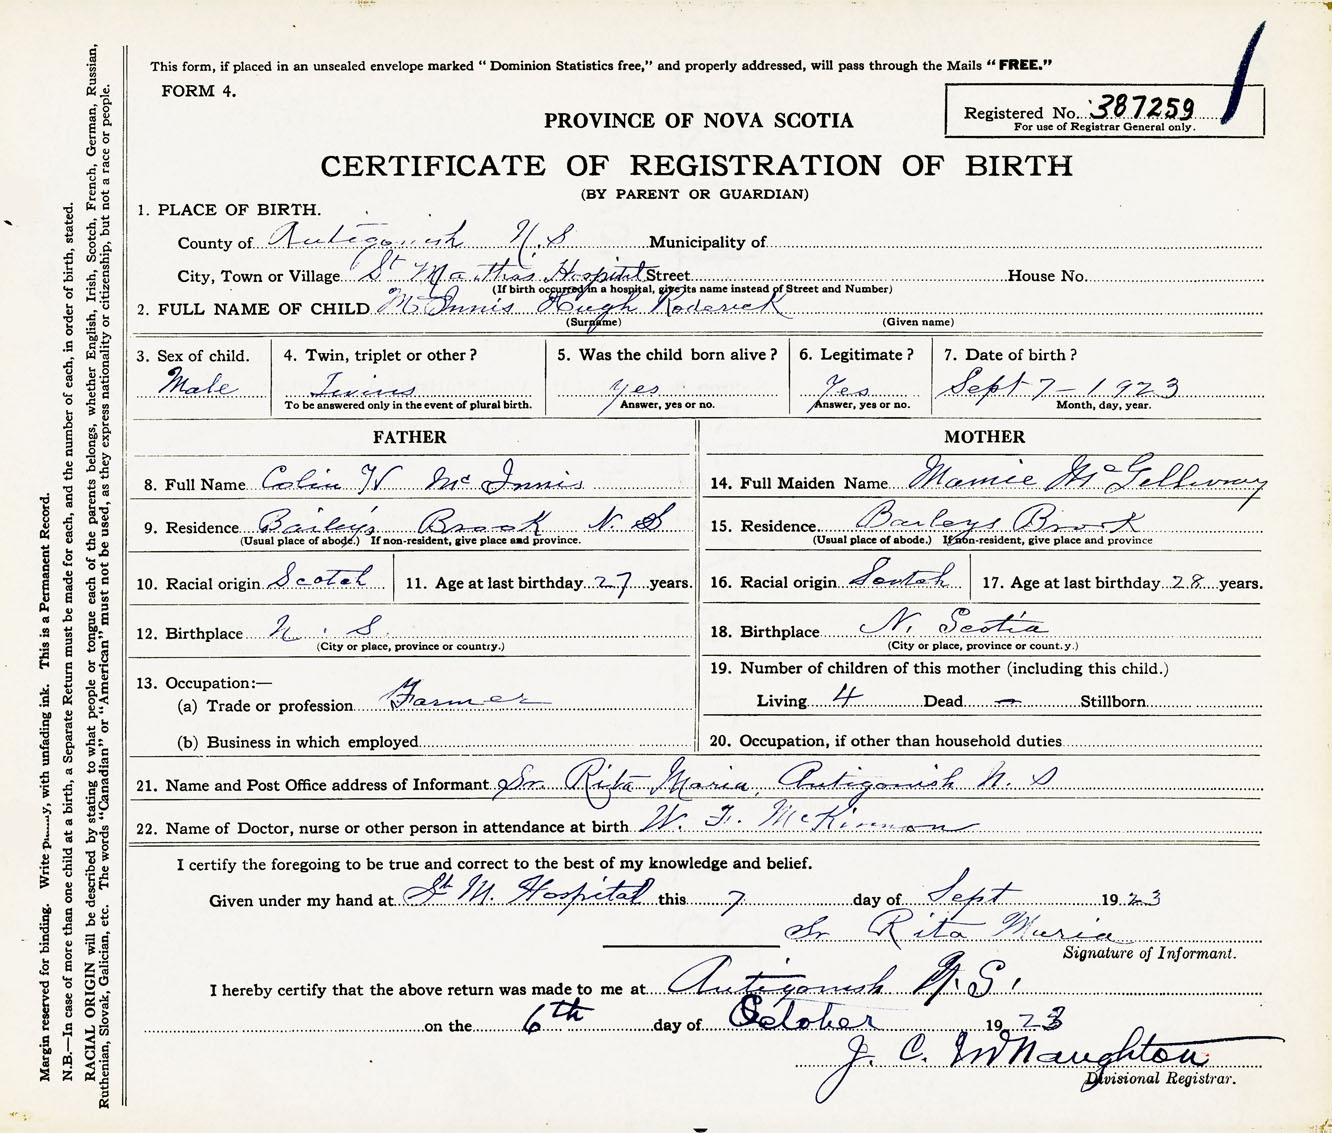 This form, if placed in an unsealed envelope marked “ Dominion Statistics free,” and properly addressed, will pass through the Mails “ FREE.”
FORM 4.
Registered No. 387259
For use of Registrar General only.
PROVINCE OF NOVA SCOTIA
CERTIFICATE OF REGISTRATION OF BIRTH
(BY PARENT OR GUARDIAN)
1. PLACE OF BIRTH.
County of Antigonish N.S Municipality of
City, Town or Village St Marthas Hospital Street House No.
(If birth occurred in a hospital, give its name instead of Street and Number)
2. FULL NAME OF CHILD McInnis Hugh Roderick
(Surname) (Given name)
3. Sex of child. 4. Twin, triplet or other ? 5. Was the child born alive ? 6. Legitimate ? 7. Date of birth ?
Male Twins yes Yes Sept 7 - 1923
To be answered only in the event of plural birth. Answer, yes or no. Answer, yes or no. Month, day, year.
FATHER MOTHER
8. Full Name Colin H McInnis 14. Full Maiden Name Mamie McGillivray
9. Residence Bailey's Brook N. S 15. Residence Barleys Brook
(Usual place of abode.) If non-resident, give place and province. (Usual place of abode.) If non-resident, give place and province
10. Racial origin Scotch 11. Age at last birthday 27 years. 16. Racial origin Scotch 17. Age at last birthday 28 years.
12. Birthplace N. S. 18. Birthplace N. Scotia
(City or place, province or country.) (City or place, province or count.y.)
13. Occupation:— 19. Number of children of this mother (including this child.)
(a) Trade or profession Farmer Living 4 Dead — Stillborn
(b) Business in which employed 20. Occupation, if other than household duties
21. Name and Post Office address of Informant Sr. Rita Maria, Antigonish N. S
22. Name of Doctor, nurse or other person in attendance at birth W. F. McKinnon
I certify the foregoing to be true and correct to the best of my knowledge and belief.
Given under my hand at St M. Hospital this 7 day of Sept 1923
Sr Rita Maria
Signature of Informant.
I hereby certify that the above return was made to me at Antigonish N.S.
on the 6th day of October 1923
J. C. McNaughton
Divisional Registrar.
Margin reserved for binding. Write , with unfading ink. This is a Permanent Record.
N.B.—In case of more than one child at a birth, a Separate Return must be made for each, and the number of each, in order of birth, stated.
RACIAL ORIGIN will be described by stating to what people or tongue each of the parents belongs, whether English, Irish, Scotch, French, German, Russian,
Ruthenian, Slovak, Galician, etc. The words “Canadian” or “American” must not be used, as they express nationality or citizenship, but not a race or people.